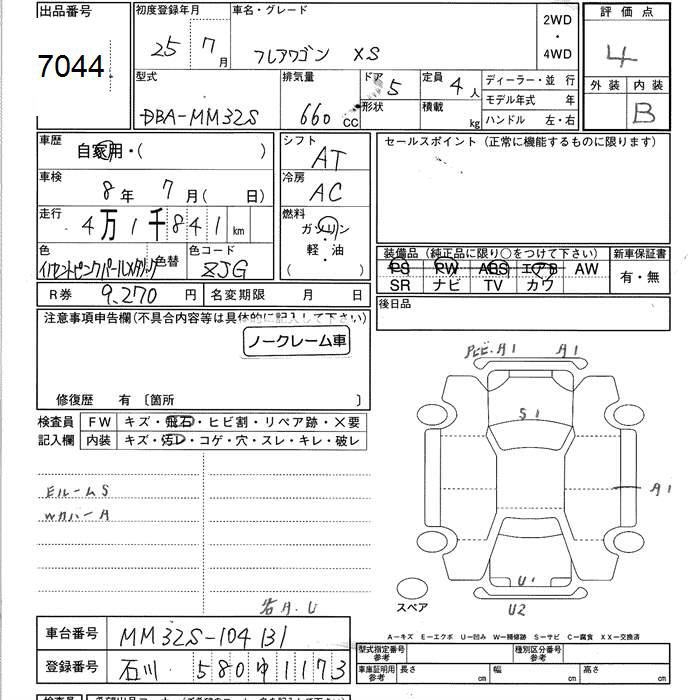 出品番号 初度登録年月 車名・グレード 2WD・4WD 評価点
7044 25年 7月 フレアワゴン XS 4
型式 排気量 ドア 5 定員 4人 ディーラー・並 行 外装 内装
DBA-MM32S 660 cc 形状 積載 kg モデル年式 年 B
ハンドル 左・右
車歴 自家用・( ) シフト AT セールスポイント (正常に機能するものに限ります)
車検 8年 7月( 日) 冷房 AC
走行 4万1千841km 燃料 ガソリン
軽・油
( )
色 色替 色コード ZJG
装備品 (純正品に限り○をつけて下さい) 新車保証書
PS PW ABS エアB AW 有・無
SR ナビ TV カワ
R券 9,270円 名変期限 月 日 後日品
注意事項申告欄(不具合内容等は具体的に記入して下さい)
ノークレーム車
修復歴 有 〔箇所 〕
検査員 FW キズ・飛石・ヒビ割・リペア跡・×要
記入欄 内装 キズ・汚レ・コゲ・穴・スレ・キレ・破レ
A1 A1
S1
EルームS
WカバーA
A1
U1
U2
スペア
各A.U
車台番号 MM32S-104131
登録番号 石川 580 ゆ 1173
A－キズ E－エクボ U－凹み W－補修跡 S－サビ C－腐食 XX－交換済
型式指定番号 参考 種別区分番号 参考
車庫証明用 参考 長さ 幅 高さ